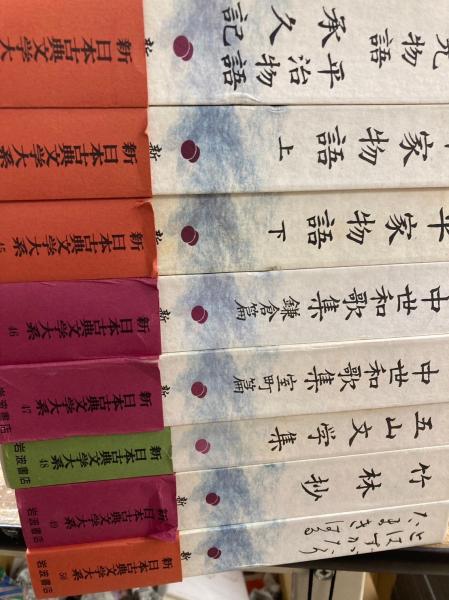 元物語
平治物語
承久記
新
新日本古典文学大
家物語 上
新
新日本古典文学大系
平家物語 下
新
新日本古典文学大系
45
中世和歌集 鎌倉篇
新
新日本古典文学大系
46
中世和歌集 室町篇
新
新日本古典文学大系
47
岩波書店
五山文学集
新日本古典文学大系
48
岩波書店
竹林抄
新
新日本古典文学大系
49
岩波書店
とはずがたり
たまきはる
新
新日本古典文学大系
50
岩波書店